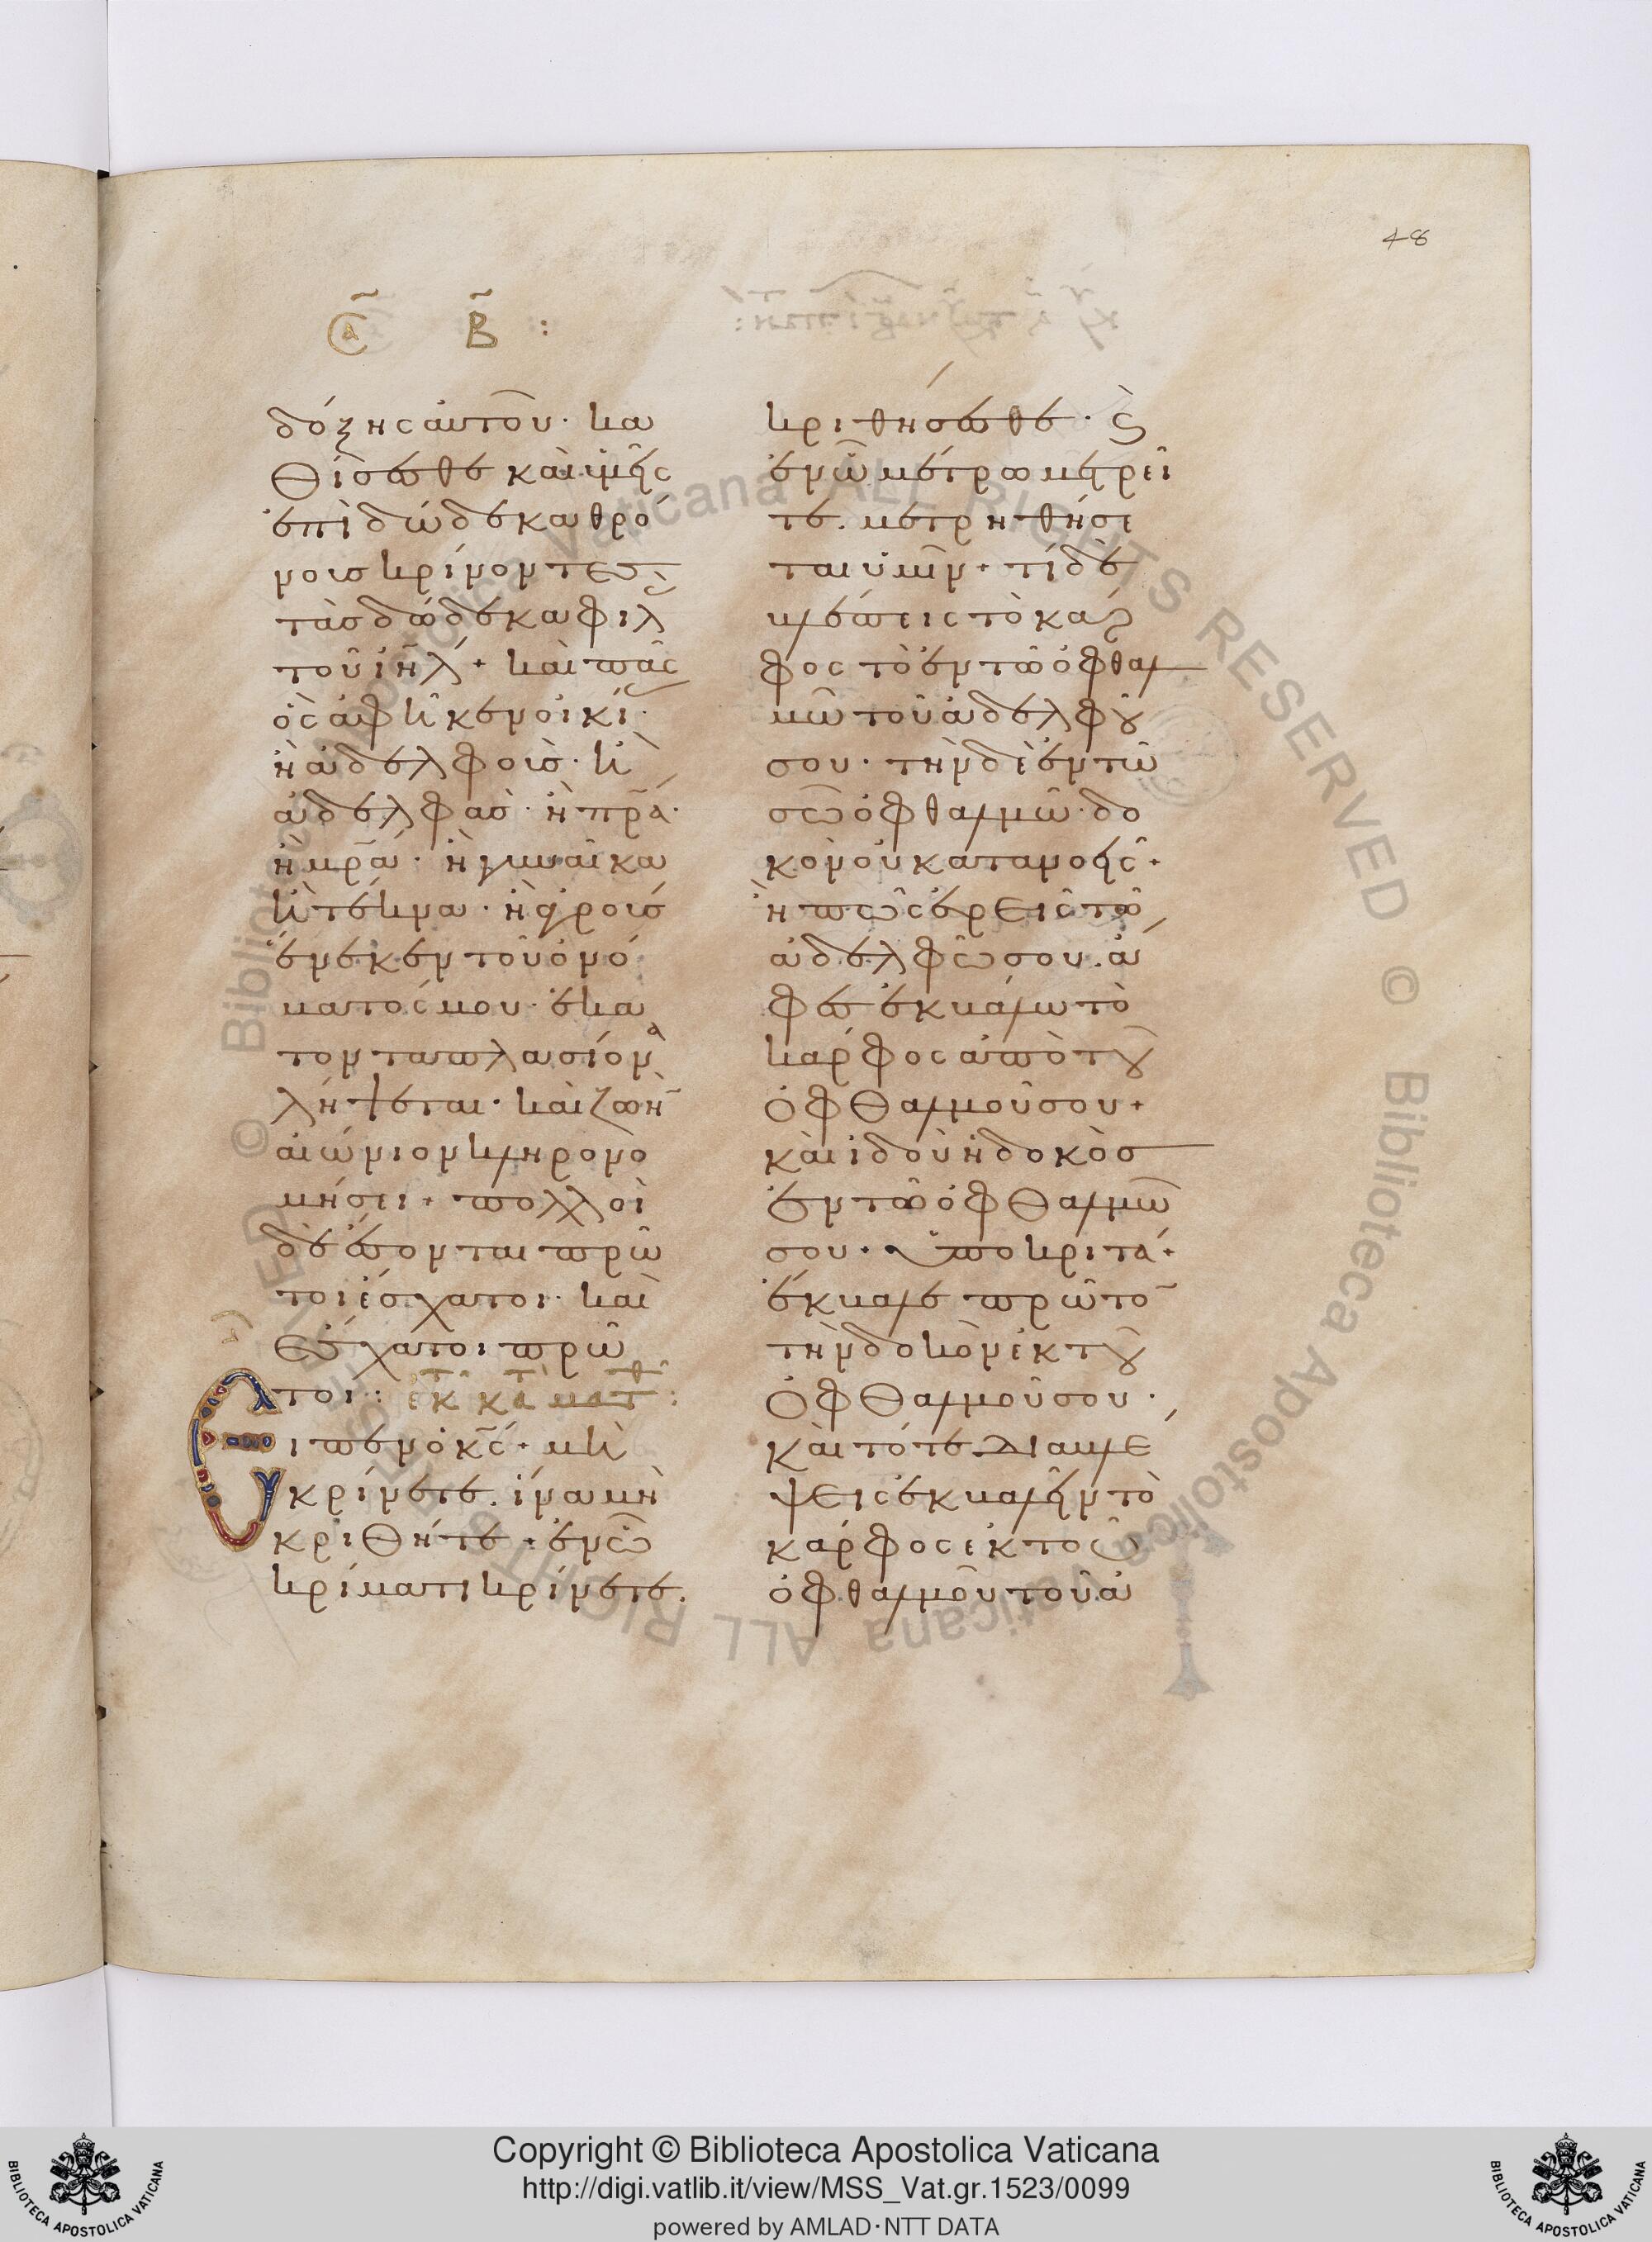 48
Β̄ :
δόξης αὐτοῦ· κα
θίσεσθε καὶ ὑμεῖς
ἐπὶ δώδεκα θρό
νοις κρίνοντες
τὰς δώδεκα φυλ
τοῦ ἰη̄λ· καὶ πᾶς
ὃς ἀφῆκεν οἰκί·
ἢ ἀδελφοὺς· ἢ
ἀδελφὰς· ἢ πρ̄α·
ἢ μρ̄α· ἢ γυναῖκα
ἢ τέκνα· ἢ ἀγροὺς
ἕνεκεν τοῦ ὀνό
ματός μου· ἑκα
τονταπλασίονα
λήψεται· καὶ ζωὴν
αἰώνιον κληρονο
μήσει· πολλοὶ
δὲ ἔσονται πρῶ
τοι ἔσχατοι· καὶ
ἔσχατοι πρῶ
τοι: ἐκ τ κα τ ματθ:
Εἶπεν ὁ κς̄· μὴ
κρίνετε. ἵνα μὴ
κριθῆτε· ἐν ὧ
κρίματι κρίνετε.
κριθήσεσθε· ϗ
ἐν ὧ μέτρω μετρεῖ
τε. μετρηθήσε
ται ὑμῖν· τί δὲ
βλέπεις τὸ κάρ
φος τὸ ἐν τῶ ὀφθαλ
μῶ τοῦ ἀδελφοῦ
σου· τὴν δὲ ἐν τῶ
σῶ ὀφθαλμῶ· δο
κὸν οὐ κατανοεῖς·
ἢ πῶς ἐρεῖς τῶ
ἀδελφῶ σου. ἄ
φες ἐκβάλω τὸ
κάρφος ἀπὸ τοῦ
ὀφθαλμοῦ σου·
καὶ ἰδοὺ ἡ δοκὸς
ἐν τῶ ὀφθαλμῶ
σου· ὑποκριτά·
ἔκβαλε πρῶτον
τὴν δοκὸν ἐκ τοῦ
ὀφθαλμοῦ σου·
καὶ τότε διαβλέ
ψεις ἐκβαλεῖν τὸ
κάρφος ἐκ τοῦ
ὀφθαλμοῦ τοῦ ἀ
© Biblioteca Apostolica Vaticana ALL RIGHTS RESERVED
Copyright © Biblioteca Apostolica Vaticana
http://digi.vatlib.it/view/MSS_Vat.gr.1523/0099
powered by AMLAD·NTT DATA
BIBLIOTECA APOSTOLICA VATICANA
BIBLIOTECA APOSTOLICA VATICANA